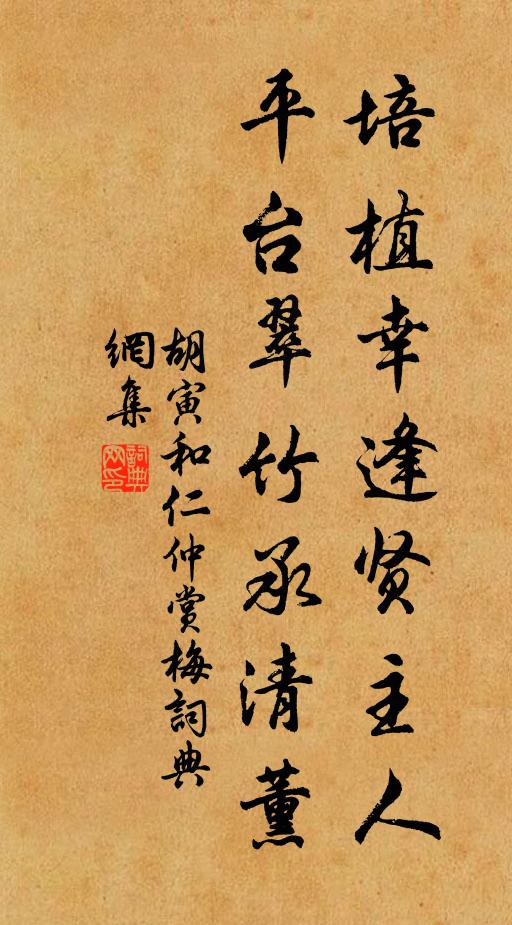 培植幸逢贤主人
平台翠竹承清薰
胡寅和仁仲赏梅詞典
網集
詞典網印